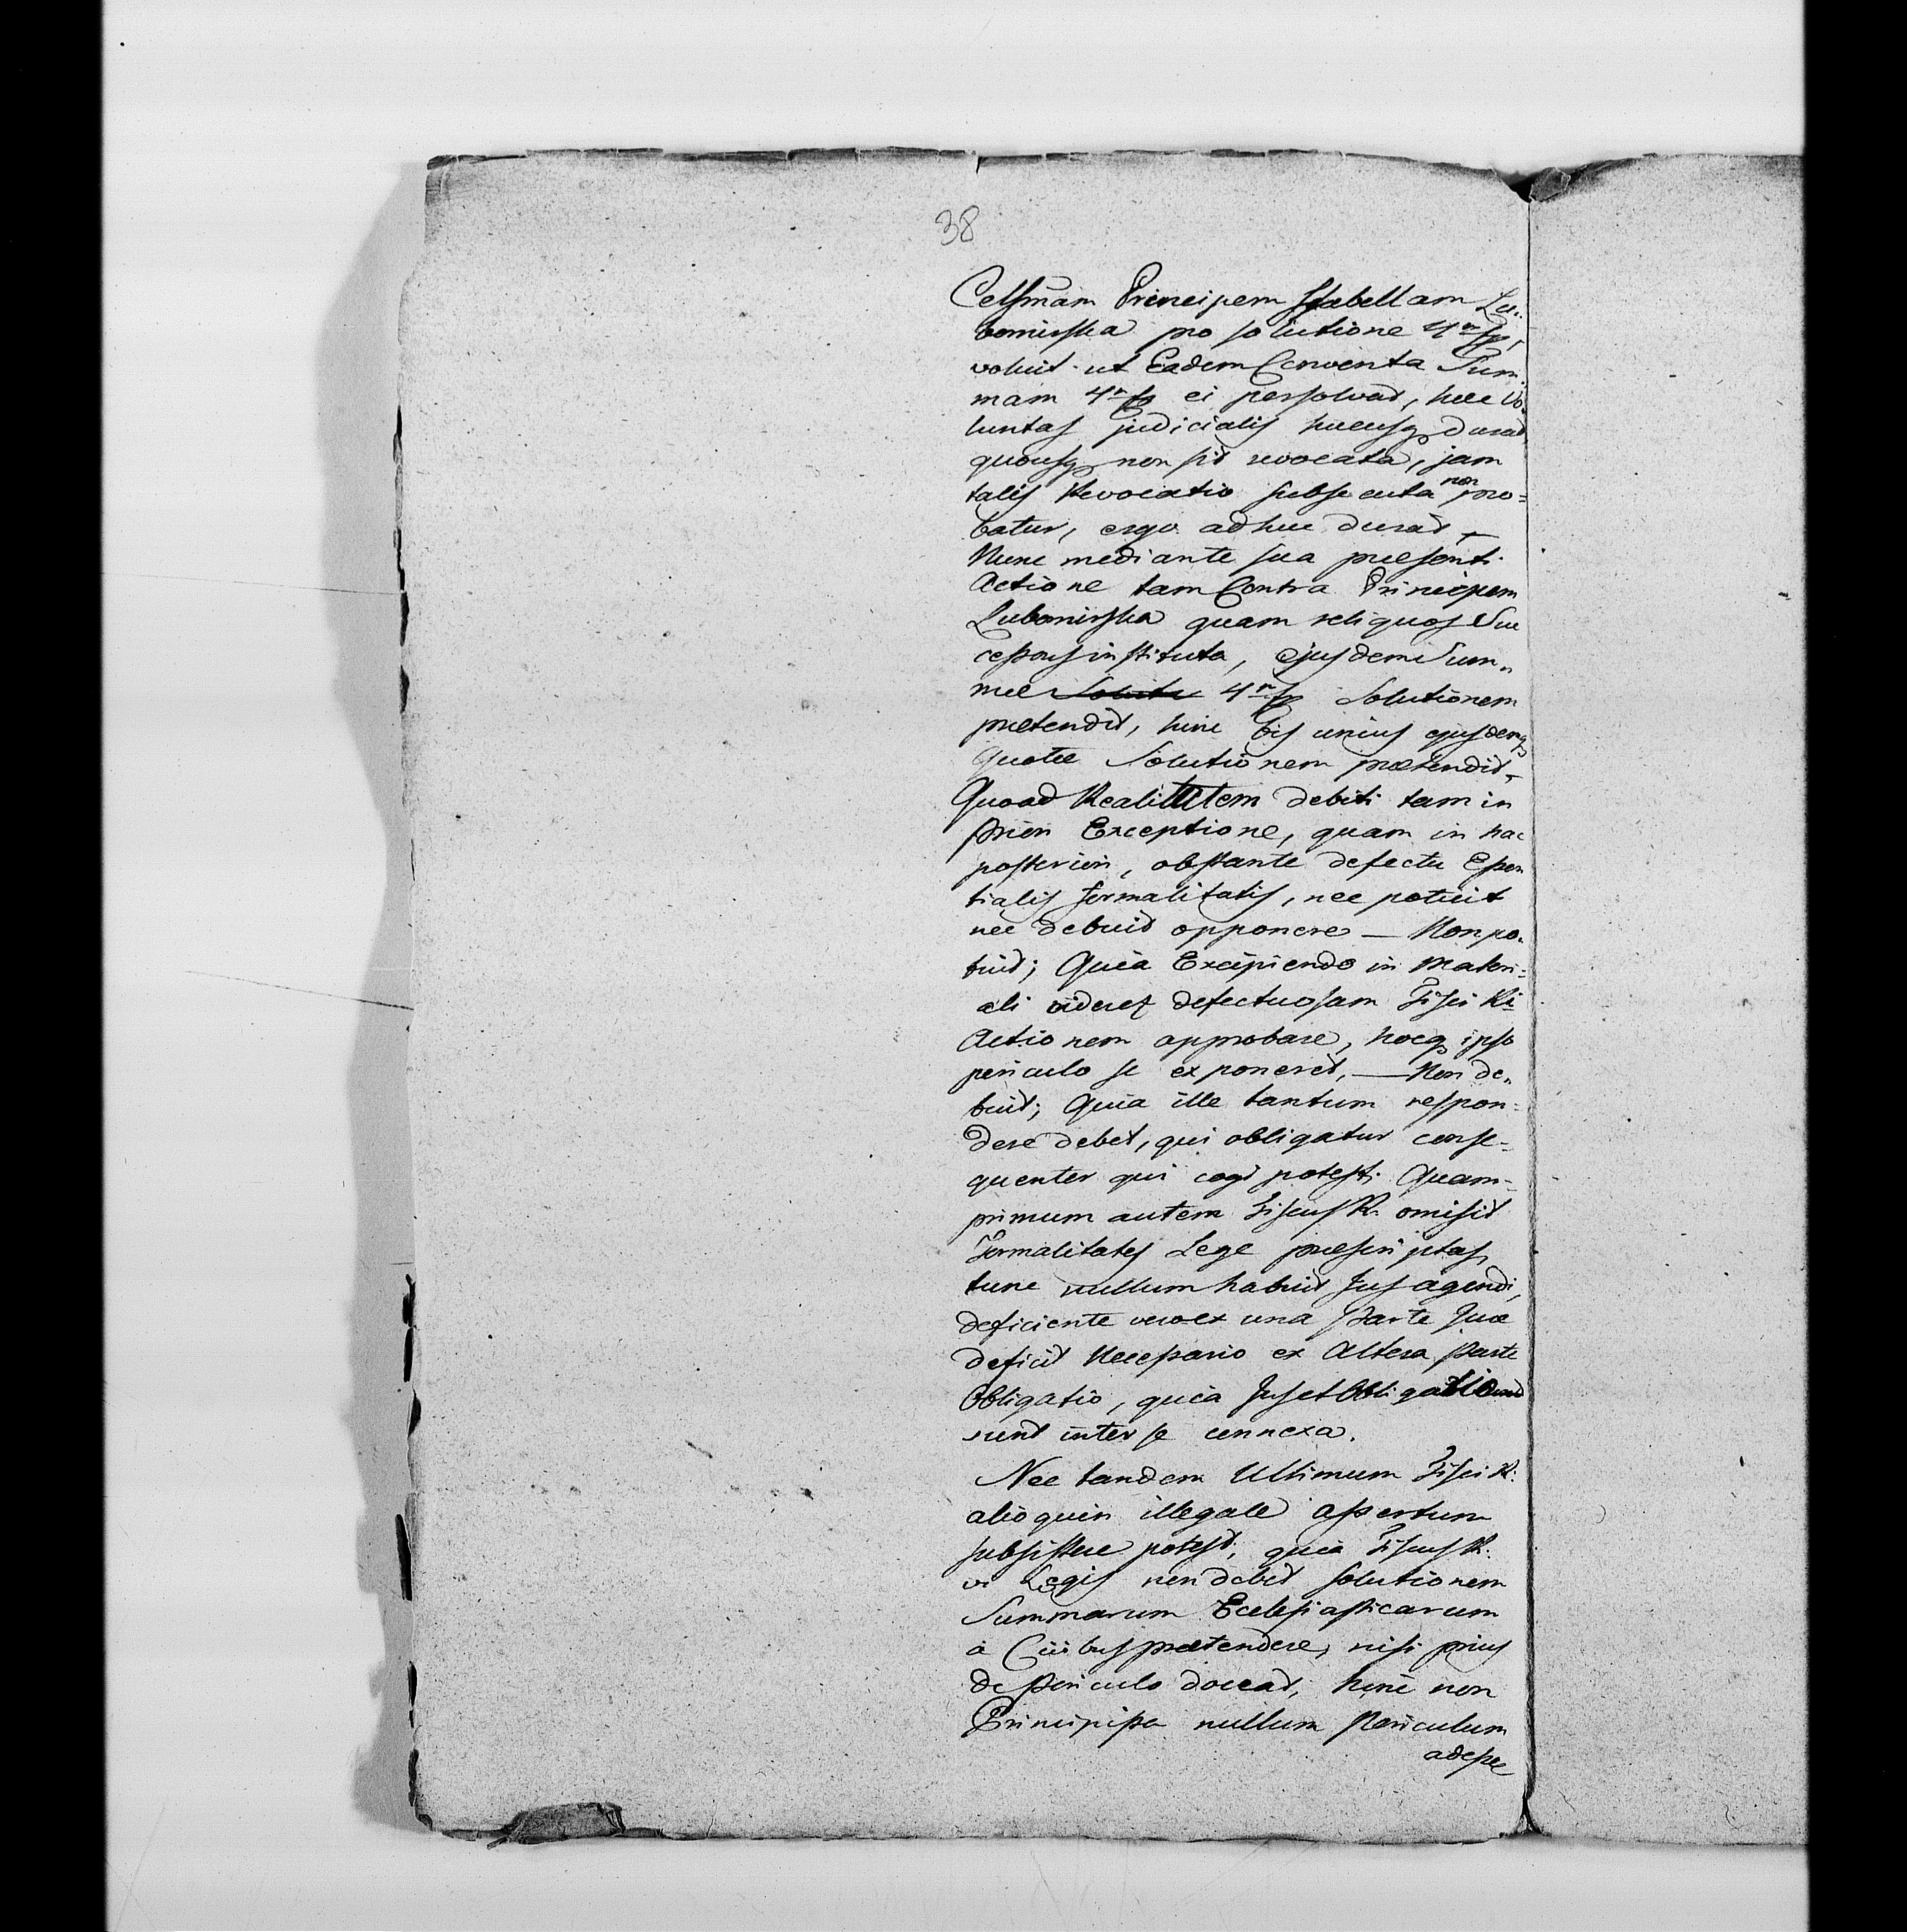 38
Celsmam Principem Isabellam Lu-
bomirska pro solutione 4m fp,
voluit ut Eadem Conventa Sum-
mam 4m fp ei persolvat, hæc Vo-
luntas judicialis hucusq durat
quousq non sit revocata, jam
talis Revocatio subsecuta non pro=
batur, ergo adhuc durat,
Nunc mediante sua præsenti
Actione tam Contra Principem
Lubomirska quam reliquos Suc
cessores instituta, ejusdem Sum-
mæ 4m fp Solutionem
prætendit, hinc bis unius ejusdemq
Quotæ Solutionem prætendit,
Quoad Realitatem debiti tam in
priori Exceptione, quam in hac
posteriori, obstante defectu Essen
tialis formalitatis, nec potuit
nec debuit opponere — Non po-
tuit; Quia Excipiendo in Materi=
ali videret defectuosam Fisci Ri
Actionem approbare, hocq ipso
periculo se exponeret, — Non de-
buit; Quia ille tantum respon=
dere debet, qui obligatur conse-
quenter qui cogi potest. Quam-
primum autem Fiscus R. omisit
Formalitates Lege præscriptas,
tunc nullum habuit Jus agendi,
deficiente vero ex una Parte Jure
deficit Necessario ex Altera parte
Obligatio, quia Jus et Obligatio
sunt inter se connexa.
Nec tandem Ultimum Fisci R:
alioquin illegale assertum
subsistere potest, quia Fiscus R:
vi Legis non debet solutionem
Summarum Ecclesiasticarum
a Civibus prætendere, nisi prius
de Periculo doceat, hinc non
Principissa nullum Periculum
adesse